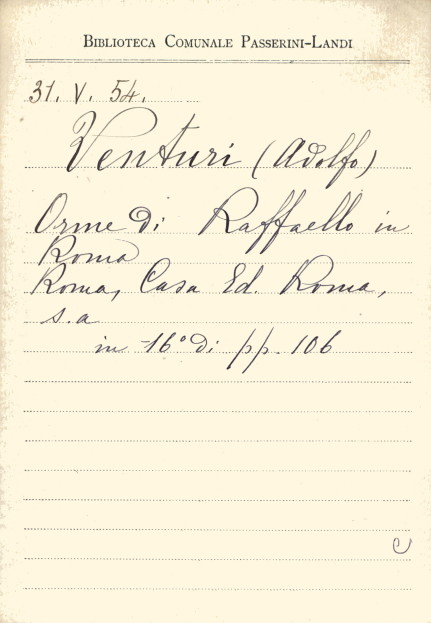 BIBLIOTECA COMUNALE PASSERINI-LANDI
31. V. 54.
Venturi (Adolfo)
Orme di Raffaello in
Roma
Roma, Casa Ed. Roma,
s.a
in -16° di pp. 106